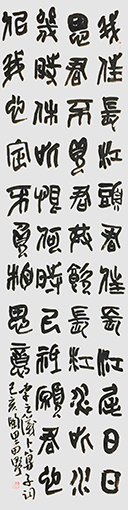 我住長江頭君住長江尾日日
思君不見君共飲長江水此水
幾時休此恨何時已祇願君心
似我心定不負相思意
李之儀卜算子詞
己亥